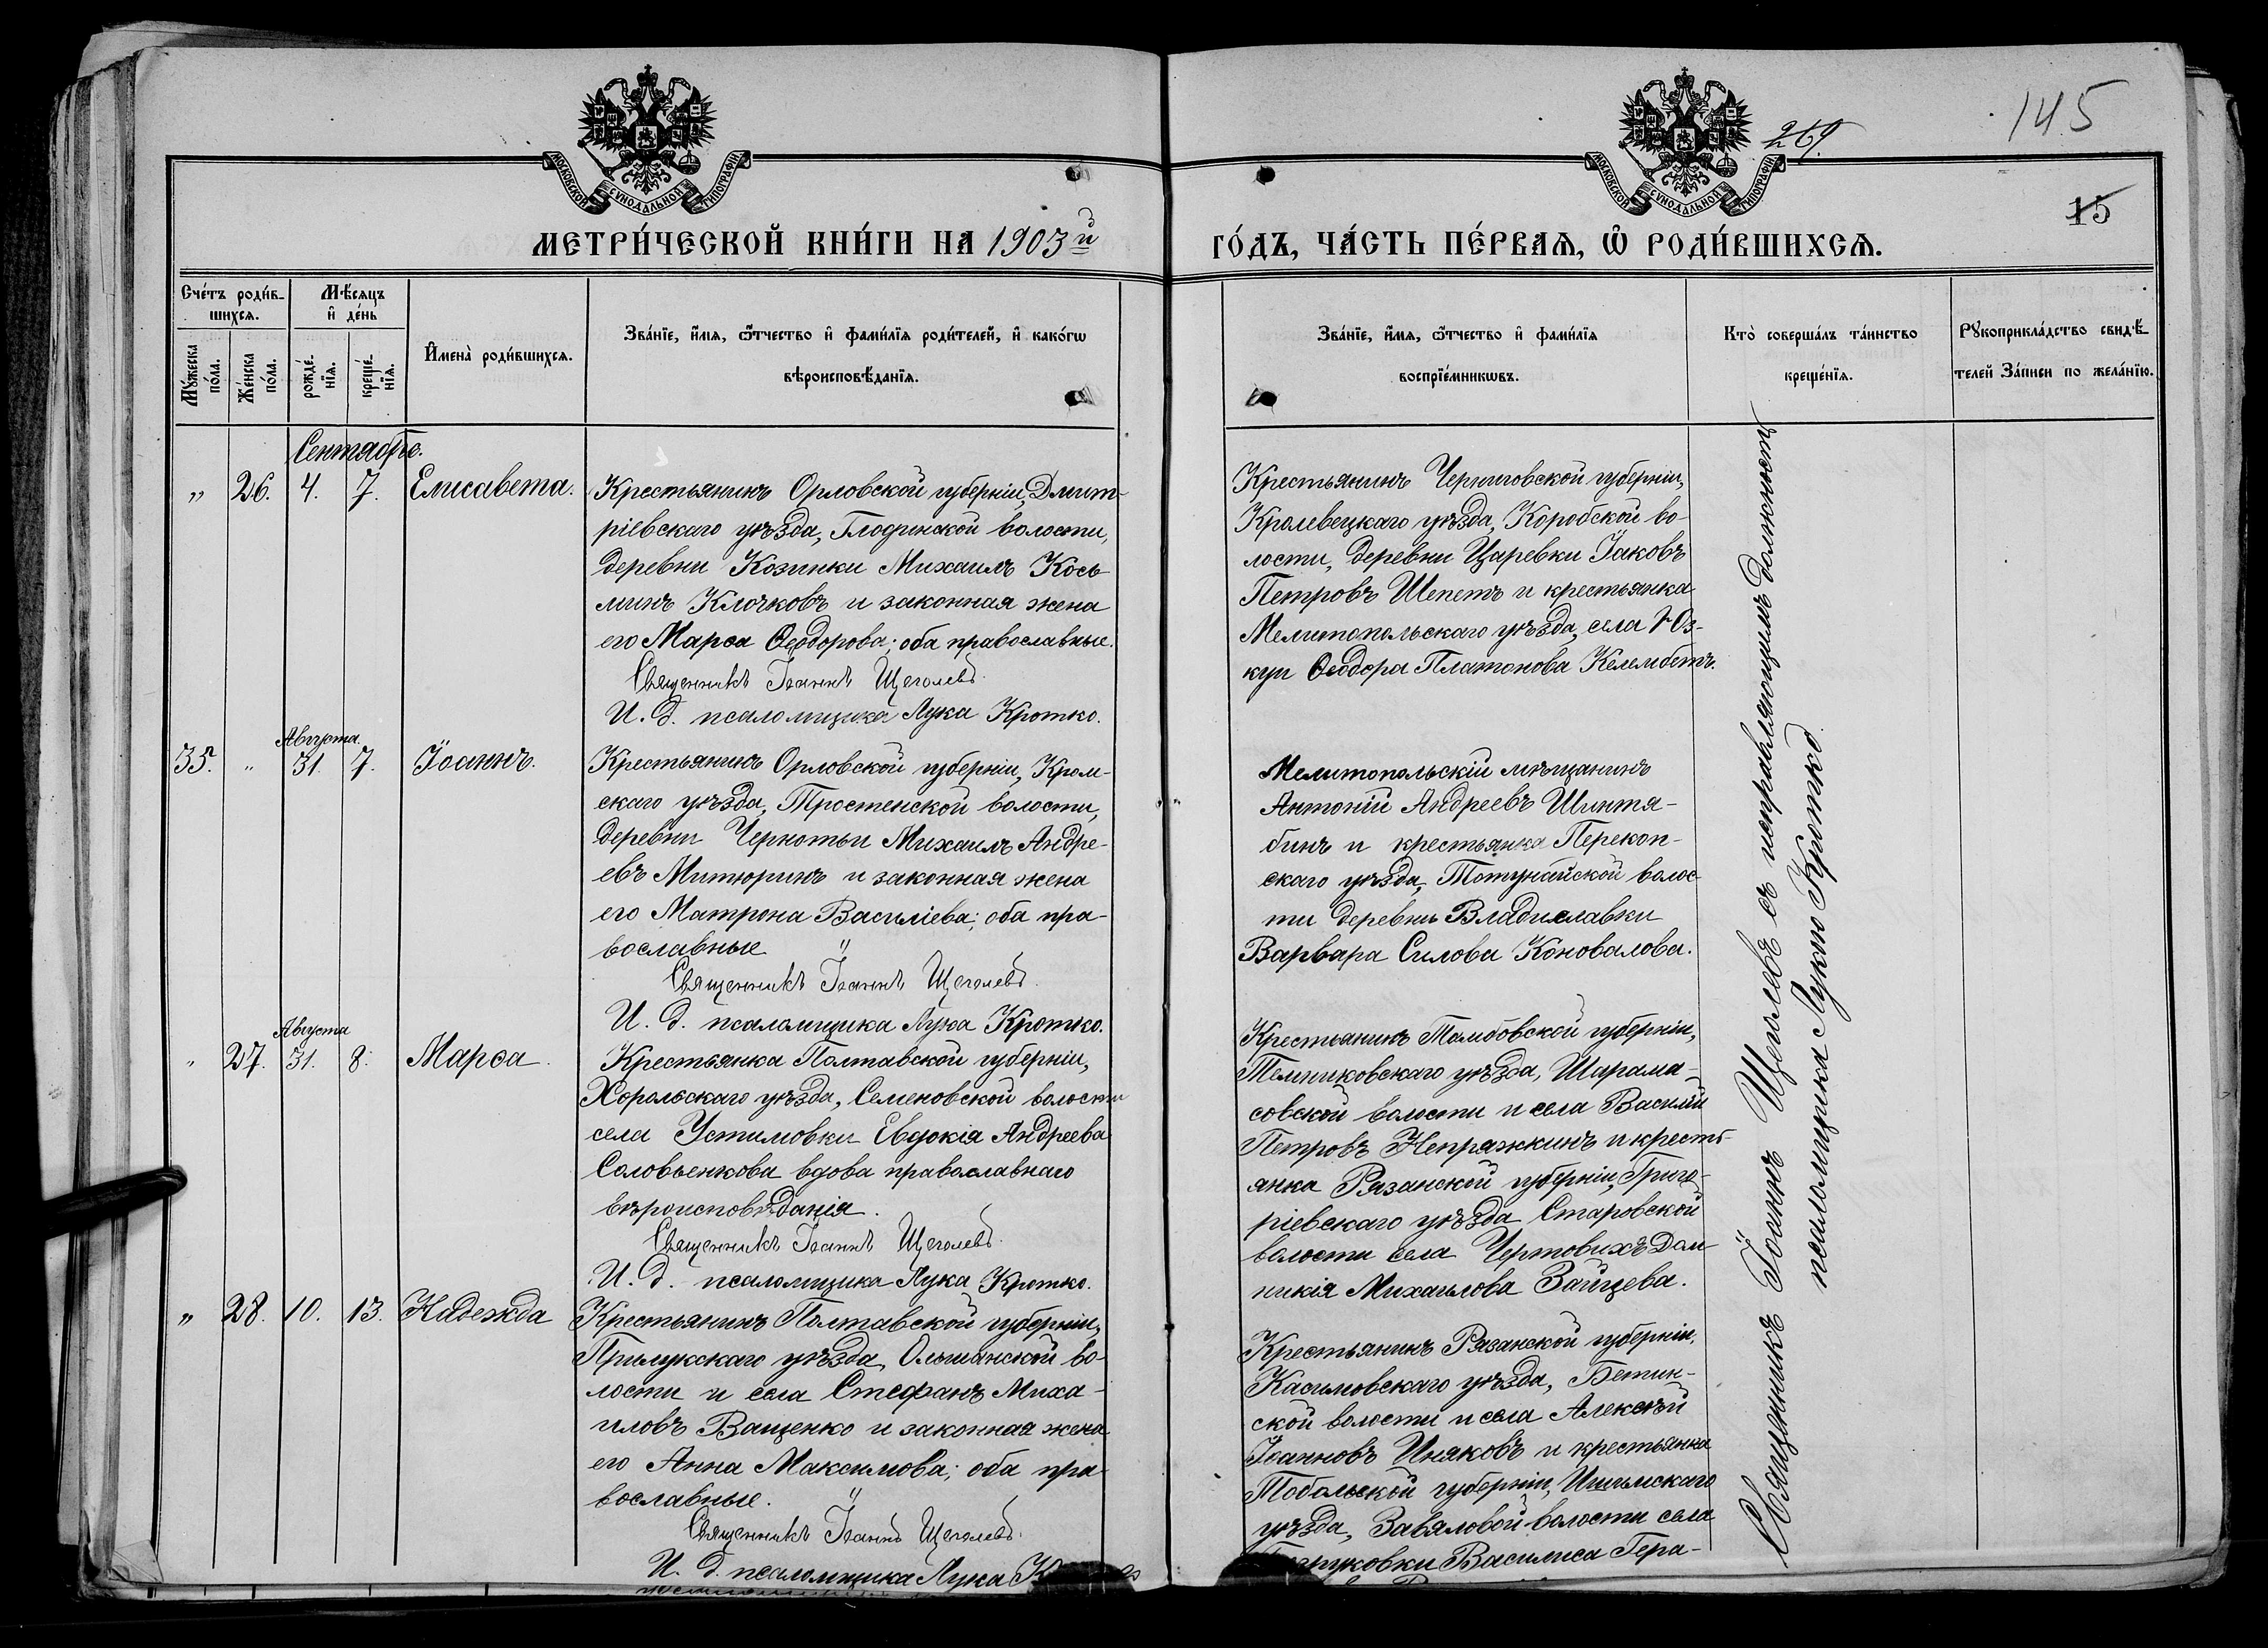 145
269.
15
МОСКОВСКОЙ СѴНОДАЛЬНОЙ ТИПОГРАФІИ
МОСКОВСКОЙ СѴНОДАЛЬНОЙ ТИПОГРАФІИ
МЕТРИ́ЧЕСКОЙ КНИ́ГИ НА 1903й
ГО́ДЪ, ЧА́СТЬ ПЕ́РВАЯ, Ѡ РОДИ́ВШИХСЯ.
Сче́тъ роди́в-
шихся.
Му́жеска
по́ла.
Же́нска
по́ла.
Мѣ́сяцъ
и де́нь
рожде́-
нїя.
креще́-
нїя.
Имена̀ роди́вшихся.
Зва́нїе, и́мя, ѻ́тчество и фами́лїя роди́телей, и како́гѡ
вѣроисповѣ́данїя.
Зва́нїе, и́мя, ѻ́тчество и фами́лїя
воспрїе́мникѡвъ.
Кто̀ соверша́лъ та́инство
креще́нїя.
Рꙋкоприкла́дство свидѣ́-
телей За́писи по жела́нїю.
Сентябрь.
„ 26. 4. 7. Елисавета.
Крестьянинъ Орловской губерніи, Дмит-
ріевскаго уѣзда, Глодинской волости,
деревни Козинки Михаилъ Кось-
минъ Клочковъ и законная жена
его Марѳа Ѳеодорова; оба православные.
Священникъ Іоаннъ Щеголевъ.
И. д. псаломщика Лука Кротко.
Крестьянинъ Черниговской губерніи,
Кролевецкаго уѣзда, Коробской во-
лости, деревни Царевки Іаковъ
Петровъ Шепетъ и крестьянка
Мелитопольскаго уѣзда, села
Ѳеодора Платонова Келембетъ.
Августа.
35. „ 31. 7. Іоаннъ.
Крестьянинъ Орловской губерніи, Кром-
скаго уѣзда, Тростенской волости,
деревни Чернотьи Михаилъ Андре-
евъ Митюринъ и законная жена
его Матрона Василіева; оба пра-
вославные
Священникъ Іоаннъ Щеголевъ.
И. д. псаломщика Лука Кротко.
Мелитопольскій мѣщанинъ
Антоній Андреевъ Шинтя-
бинъ и крестьянка Перекоп-
скаго уѣзда, Тотунайской волос-
ти деревни Владиславки
Варвара Силова Коновалова.
Августа
„ 27. 31. 8. Марѳа.
Крестьянка Полтавской губерніи,
Хорольскаго уѣзда, Семеновской волости
села Устимовки Евдокія Андреева
Соловьенкова вдова православнаго
вѣроисповѣданія.
Священникъ Іоаннъ Щеголевъ.
И. д. псаломщика Лука Кротко.
Крестьянинъ Тамбовской губерніи,
Темниковскаго уѣзда, Ширама-
совской волости и села Василій
Петровъ Непряжкинъ и кресть-
янка Рязанской губерніи, Григо-
ріевскаго уѣзда Старовской
волости села Чертовихъ Дом-
никія Михаилова Зайцева.
„ 28. 10. 13. Надежда
Крестьянинъ Полтавской губерніи,
Прилукскаго уѣзда, Ольшанской во-
лости и села Стефанъ Миха-
иловъ Ващенко и законная жена
его Анна Максимова; оба пра-
вославные.
Священникъ Іоаннъ Щеголевъ.
И. д. псаломщика Лука
Крестьянинъ Рязанской губерніи,
Касимовскаго уѣзда, Бетин-
ской волости и села Алексѣй
Іоанновъ Иняковъ и крестьянка
Тобольской губерніи, Ишимскаго
уѣзда, Завяловой волости села
Василиса Гера-
Священникъ Іоаннъ Щеголевъ съ исправляющимъ должность
псаломщика Лукою Кротко.